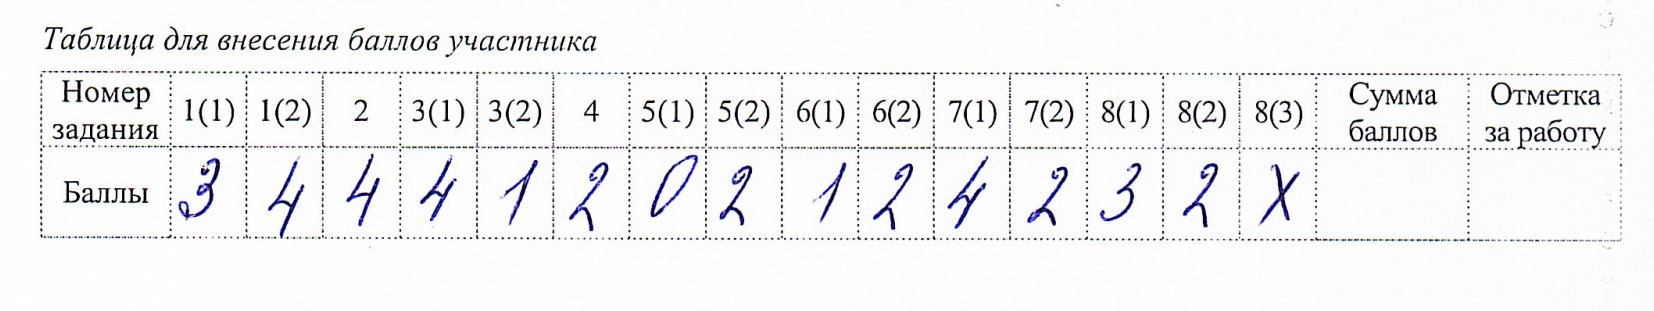 Таблица для внесения баллов участника
Номер задания 1(1) 1(2) 2 3(1) 3(2) 4 5(1) 5(2) 6(1) 6(2) 7(1) 7(2) 8(1) 8(2) 8(3) Сумма баллов Отметка за работу
Баллы 3 4 4 4 1 2 0 2 1 2 4 2 3 2 X